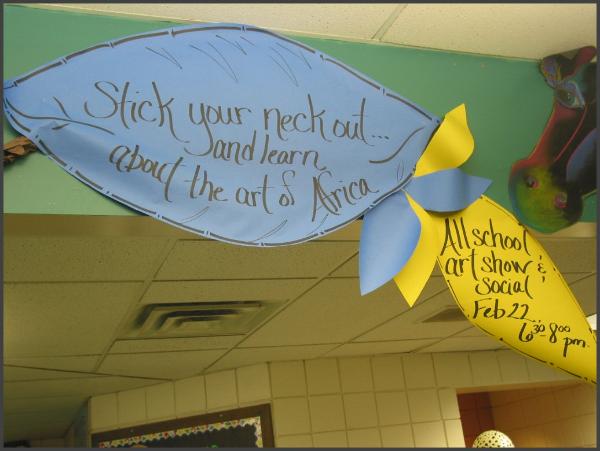 Stick your neck out...
and learn
about the art of Africa
All school
art show &
social
Feb 22
6:30-8:00
pm.